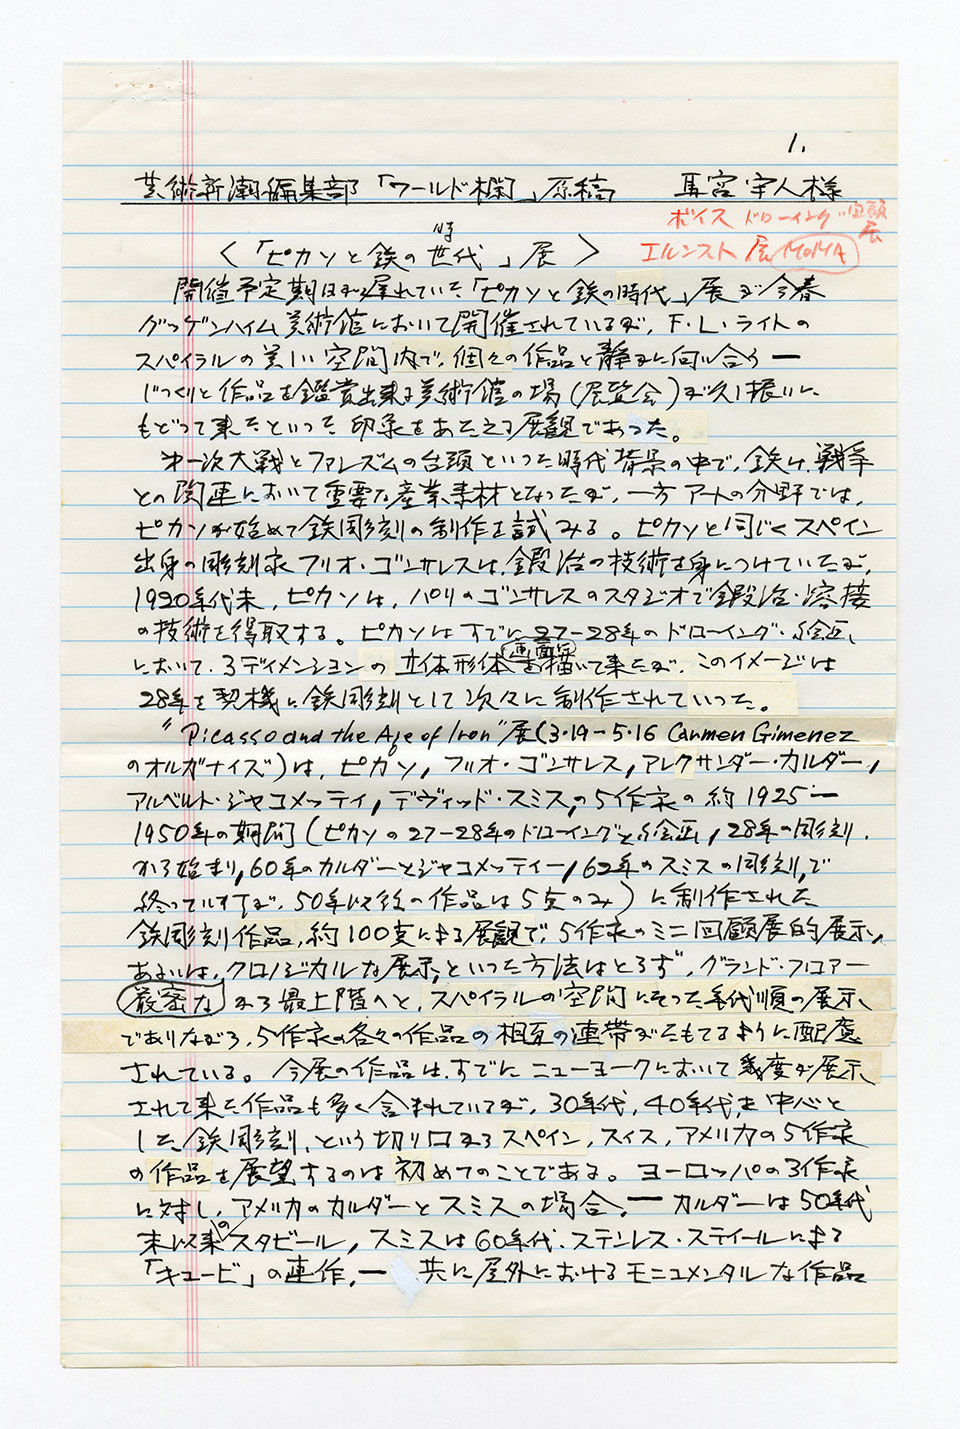 1.
芸術新潮編集部「ワールド欄」原稿 馬宮宇人様
ボイス ドローイング 回顧展
エルンスト展 MOMA
時
〈「ピカソと鉄の世代」展〉
開催予定期日が遅れていた「ピカソと鉄の時代」展が今春
グッゲンハイム美術館において開催されているが、F・L・ライトの
スパイラルの美しい空間内で、個々の作品と静かに向い合う ー
じっくりと作品を鑑賞出来る美術館の場(展覧会)が久し振りに
もどって来たといった印象をあたえる展観であった。
第一次大戦とファシズムの台頭といった時代背景の中で、鉄は、戦争
との関連において重要な産業素材となったが、一方アートの分野では、
ピカソが始めて鉄彫刻の制作を試みる。ピカソと同じくスペイン
出身の彫刻家フリオ・ゴンサレスは、鍛治の技術を身につけていたが、
1920年代末、ピカソは、パリのゴンサレスのスタジオで鍛治・溶接
の技術を得取する。ピカソはすでに27-28年のドローイング・絵画
において、3ディメンションの立体形体を画面に描いて来たが、このイメージは
28年を契機に鉄彫刻として次々に制作されていった。
"Picasso and the Age of Iron"展(3・19-5・16 Carmen Gimenez
のオルガナイズ)は、ピカソ,フリオ・ゴンサレス,アレクサンダー・カルダー,
アルベルト・ジャコメッティ,デヴィッド・スミスの5作家の約1925ー
1950年の期間(ピカソの27-28年のドローイングと絵画,28年の彫刻
から始まり,60年のカルダーとジャコメッティー,62年のスミスの彫刻,で
終っていますが,50年以後の作品は5支のみ)に制作された
鉄彫刻作品,約100支による展観で,5作家のミニ回顧展的展示,
あるいは,クロノジカルな展示,といった方法はとらず,グランド・フロアー
厳密な から最上階へと,スパイラルの空間にそった年代順の展示
でありながら,5作家の各々の作品の相互の連帯がたもてるように配慮
されている。今展の作品は,すでにニューヨークにおいて幾度が展示
されて来た作品も多く含まれているが,30年代,40年代を中心と
した鉄彫刻,という切り口からスペイン,スイス,アメリカの5作家
の作品を展望するのは初めてのことである。ヨーロッパの3作家
に対し,アメリカのカルダーとスミスの場合, ー カルダーは50年代
末以来のスタビール,スミスは60年代、ステンレス・スティールによる
「キュービ」の連作,ー 共に屋外におけるモニュメンタルな作品